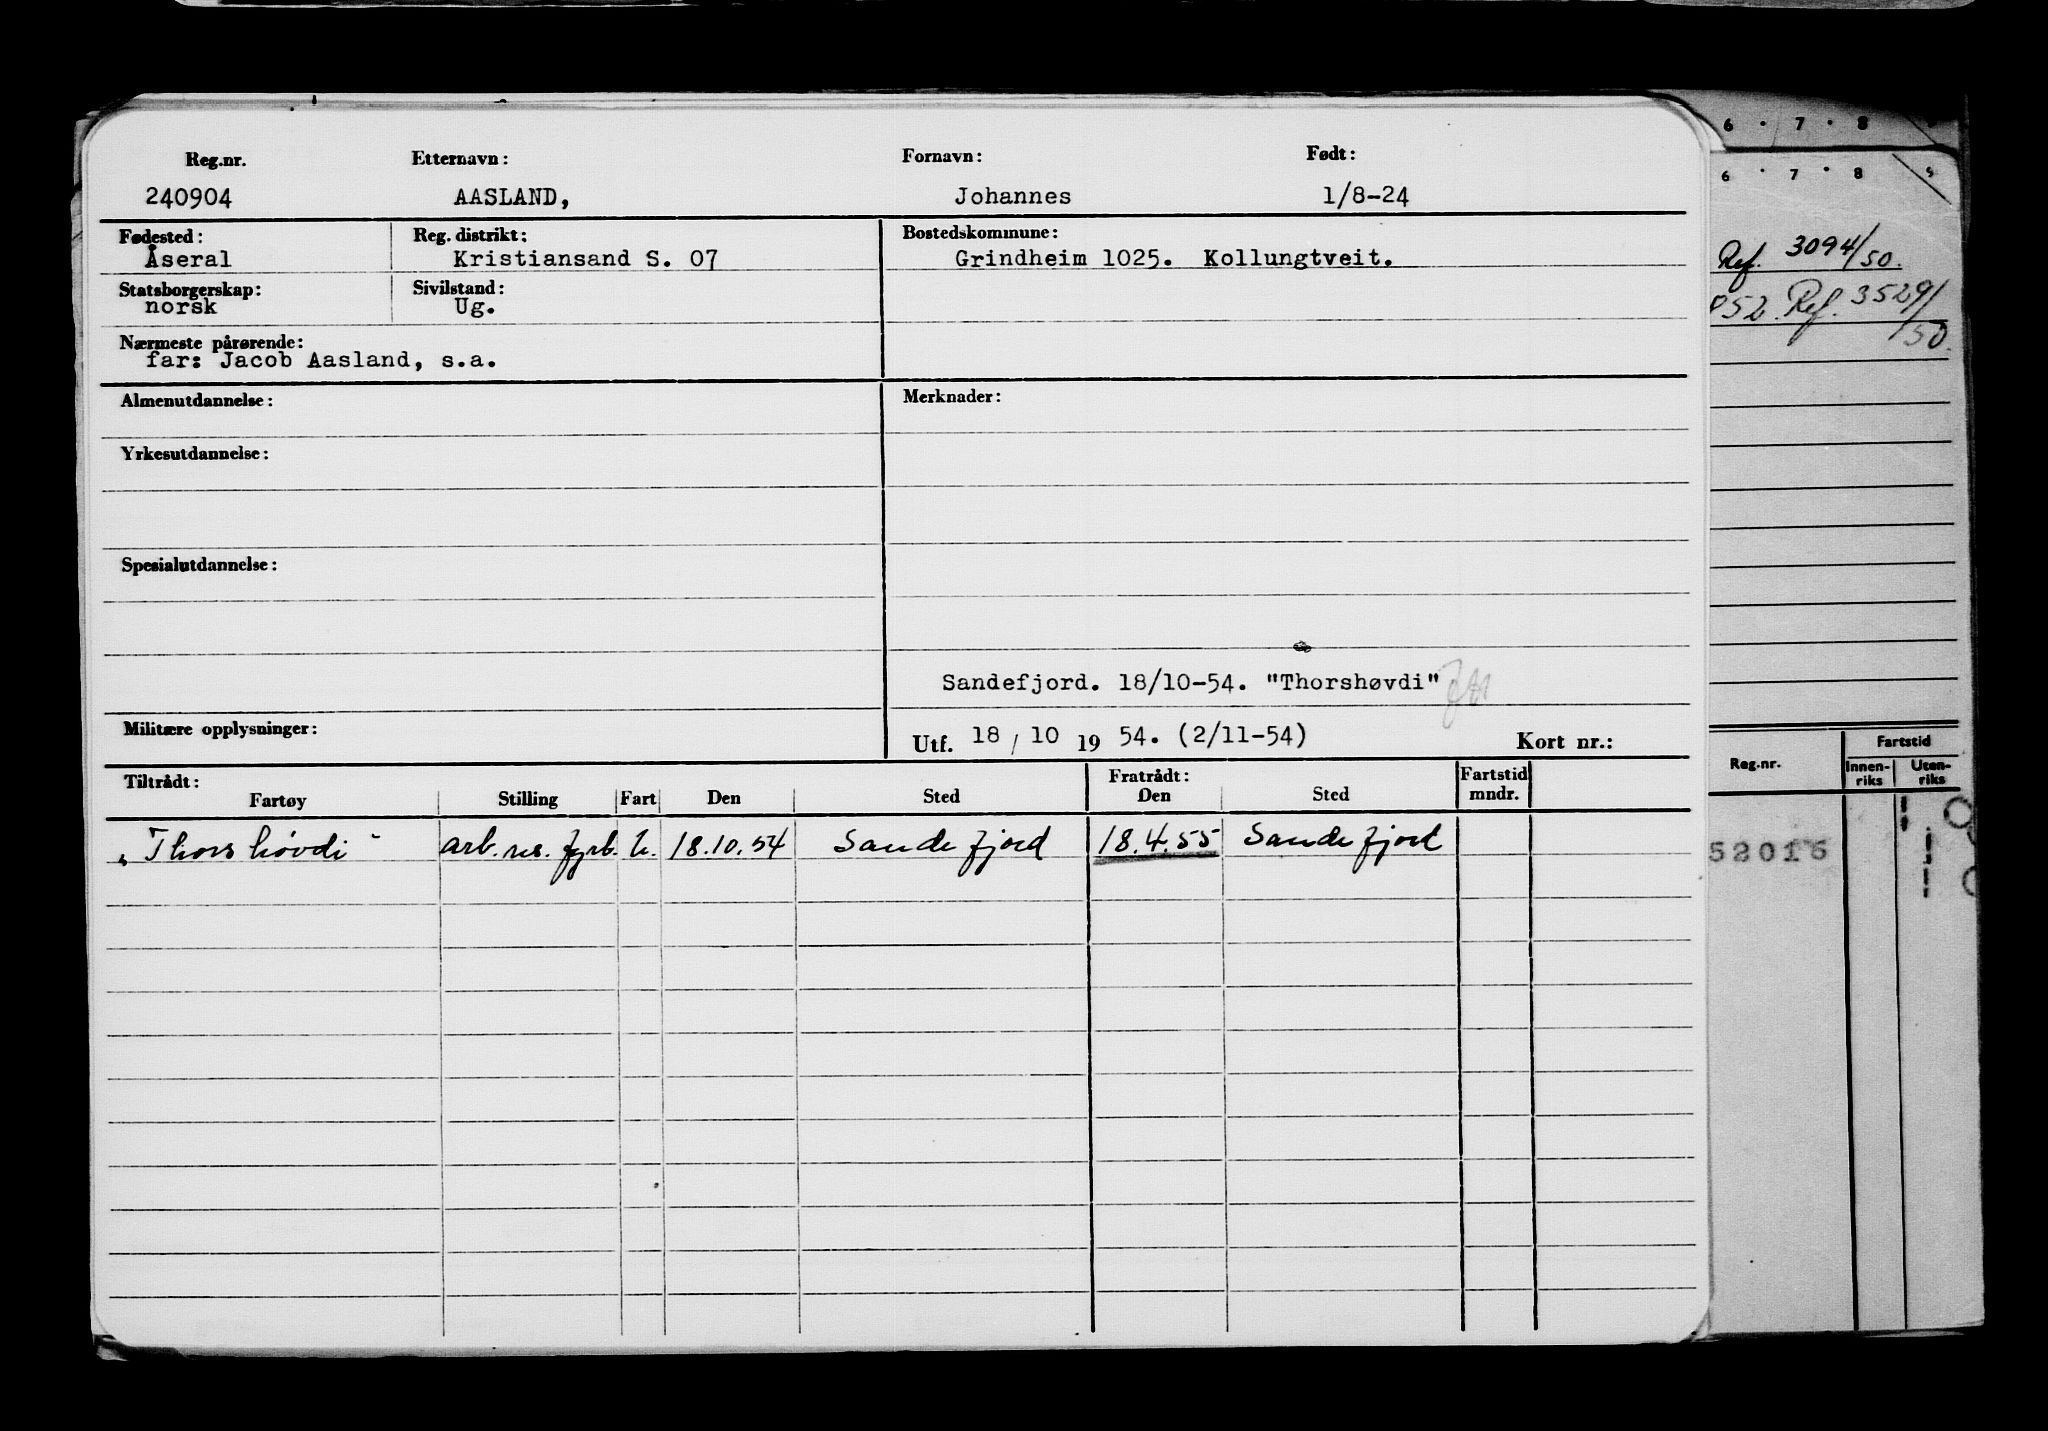 6 · 7 · 8
6 · 7 · 8 9
Reg.nr. Etternavn: Fornavn: Født:
240904 AASLAND, Johannes 1/8-24
Fødested: Reg. distrikt: Bostedskommune:
Åseral Kristiansand S. 07 Grindheim 1025. Kollungtveit.
Ref. 3094/50.
Statsborgerskap: Sivilstand:
norsk Ug.
52. Ref. 3529/50.
Nærmeste pårørende:
far: Jacob Aasland, s.a.
Almenutdannelse: Merknader:
Yrkesutdannelse:
Spesialutdannelse:
Sandefjord. 18/10-54. "Thorshøvdi"
Militære opplysninger: Utf. 18 / 10 19 54. (2/11-54) Kort nr.:
Reg.nr. Fartstid
Innen-riks Uten-riks
Tiltrådt: Fratrådt: Fartstid
Fartøy Stilling Fart Den Sted Den Sted mndr.
"Thorshövdi" arb. res. fyrb. h. 18.10.54 Sandefjord 18.4.55 Sandefjord
52016